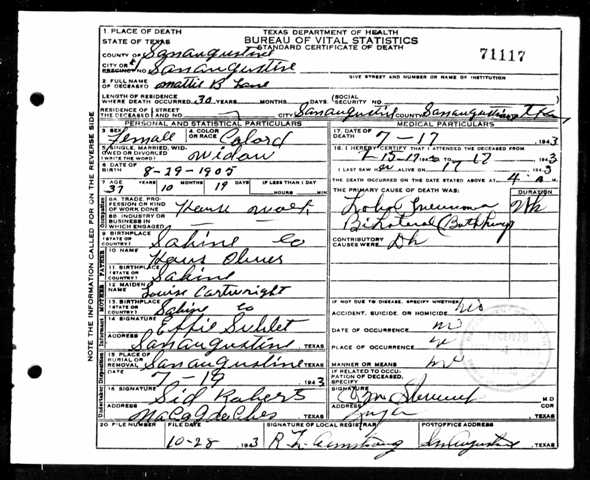 1 PLACE OF DEATH
STATE OF TEXAS
TEXAS DEPARTMENT OF HEALTH
BUREAU OF VITAL STATISTICS
STANDARD CERTIFICATE OF DEATH
71117
COUNTY OF San augustine
CITY OR PRECINCT NO. San augustine
GIVE STREET AND NUMBER OR NAME OF INSTITUTION
2 FULL NAME OF DECEASED Mattie B Lane
LENGTH OF RESIDENCE WHERE DEATH OCCURRED 30 YEARS MONTHS DAYS (SOCIAL SECURITY NO.
RESIDENCE OF THE DECEASED STREET CITY San augustine COUNTY San augustine
PERSONAL AND STATISTICAL PARTICULARS
MEDICAL PARTICULARS
3 SEX Female 4 COLOR OR RACE Colord
17 DATE OF DEATH 7-17 1943
5 SINGLE, MARRIED, WIDOWED OR DIVORCED (WRITE THE WORD) Widow
18 I HEREBY CERTIFY THAT I ATTENDED THE DECEASED FROM
TO 7-17 1943
I LAST SAW ALIVE ON 1943
6 DATE OF BIRTH 8-29-1905
7 AGE YEARS MONTHS DAYS IF LESS THAN 1 DAY
37 10 18 HOURS MIN
THE DEATH OCCURRED ON THE DATE STATED ABOVE AT 4 M
THE PRIMARY CAUSE OF DEATH WAS: DURATION
8A TRADE, PROFESSION OR KIND OF WORK DONE House work
Lobar Pneumonia
Bilateral (Both lungs)
8B INDUSTRY OR BUSINESS IN WHICH ENGAGED
CONTRIBUTORY CAUSES WERE:
9 BIRTHPLACE (STATE OR COUNTRY) Sabine Co
10 NAME Oliver
11 BIRTHPLACE (STATE OR COUNTRY) Sabine
12 MAIDEN NAME Louise Cartwright
13 BIRTHPLACE (STATE OR COUNTRY) Sabine Co
IF NOT DUE TO DISEASE, SPECIFY WHETHER:
ACCIDENT, SUICIDE, OR HOMICIDE no
14 SIGNATURE Effie Sublet
DATE OF OCCURRENCE no
ADDRESS San augustine, TEXAS
PLACE OF OCCURRENCE
15 PLACE OF BURIAL OR REMOVAL San augustine TEXAS
MANNER OR MEANS
DATE 7-19 1943
IF RELATED TO OCCUPATION OF DECEASED, SPECIFY
16 SIGNATURE Sid Roberts
SIGNATURE M D
ADDRESS Nacogdoches TEXAS
ADDRESS TEXAS
20 FILE NUMBER FILE DATE SIGNATURE OF LOCAL REGISTRAR POSTOFFICE ADDRESS
10-28 1943 San Augustine TEXAS
NOTE THE INFORMATION CALLED FOR ON THE REVERSE SIDE
FATHER
MOTHER
Informant
Disposition
Undertaker